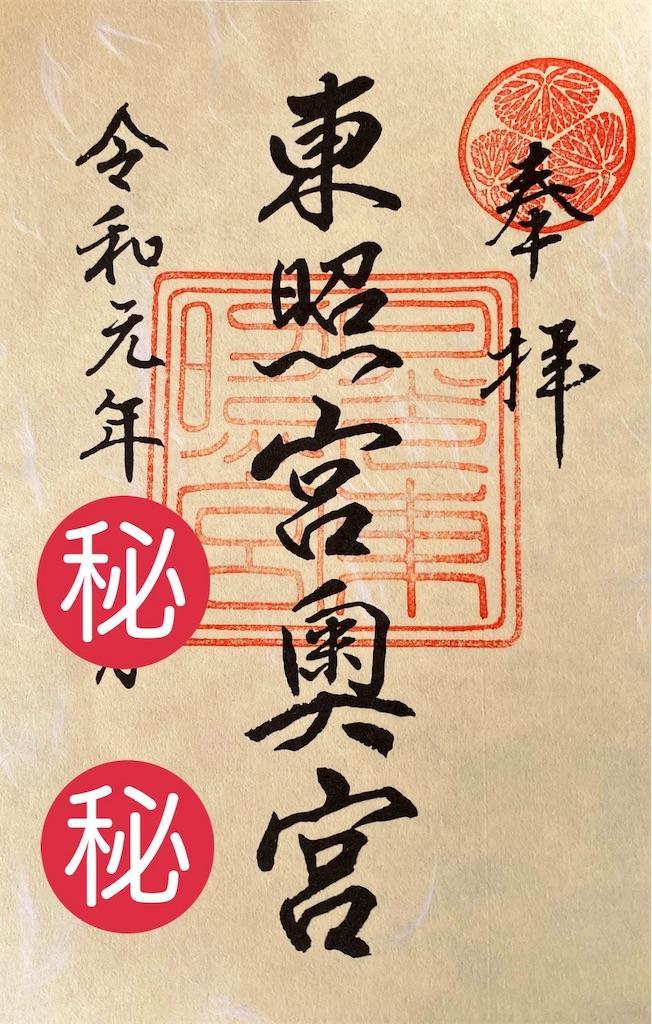 奉拝
東照宮奥宮
令和元年
㊙
月
㊙